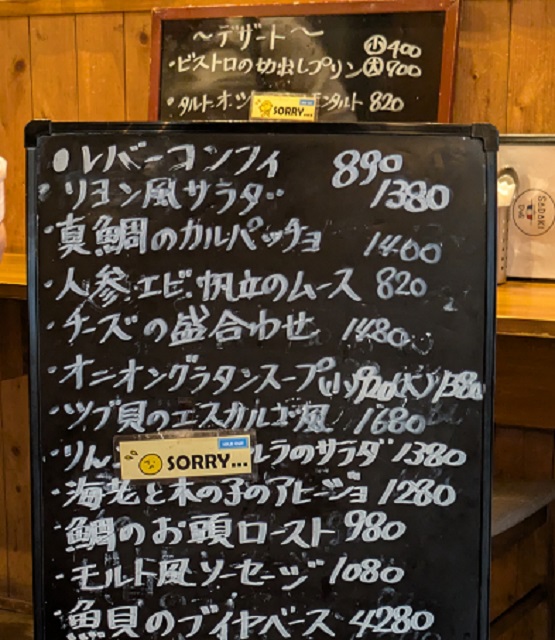 〜デザート〜
・ビストロの切出しプリン 小400 大700
・タルト・オ 820
SORRY...
・レバーコンフィ 890
・リヨン風サラダ 1380
・真鯛のカルパッチョ 1400
・人参.エビ.帆立のムース 820
・チーズの盛合わせ 1480
・オニオングラタンスープ(小) (大)1380
・ツブ貝のエスカルゴ風 1680
・りん ラのサラダ 1380
SORRY...
・海老と木の子のアヒージョ 1280
・鯛のお頭ロースト 980
・モルト風ソーセージ 1080
・魚貝のブイヤベース 4280